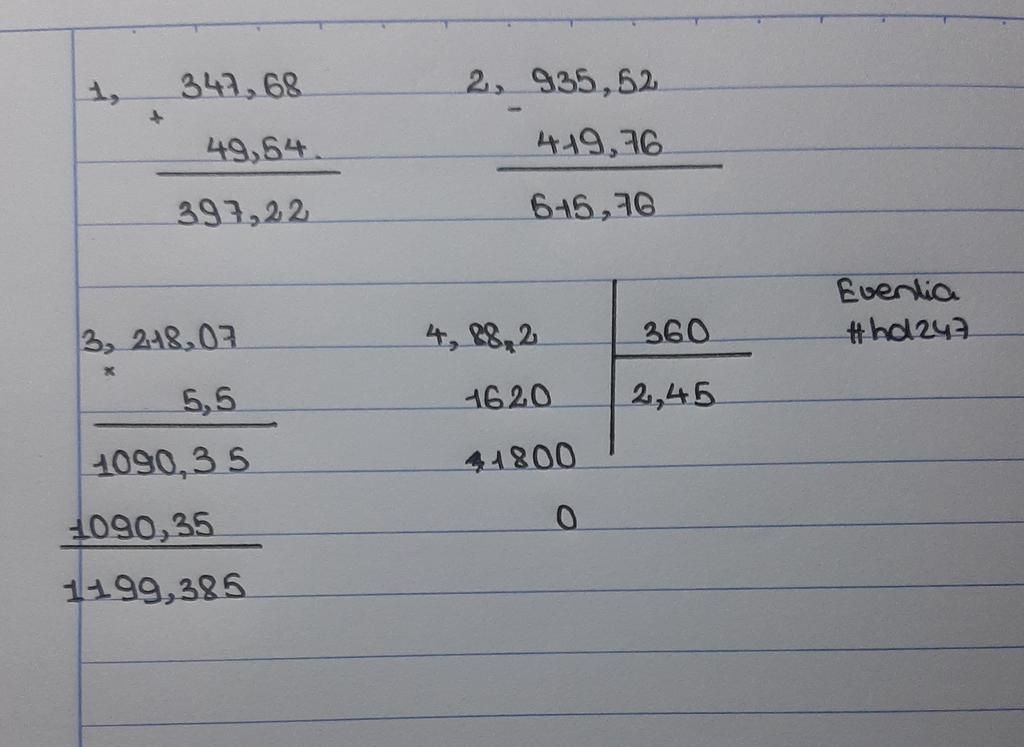 1, 347,68
+
49,54
397,22
2, 935,52
-
419,76
515,76
3, 218,07
x
5,5
1090,35
1090,35
1199,385
4, 88,2
360
1620
2,45
1800
0
Evenlia
#hd247